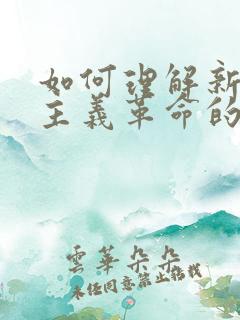 如何理解新
主义革命的
雲華朵朵
未经同意禁止搭载